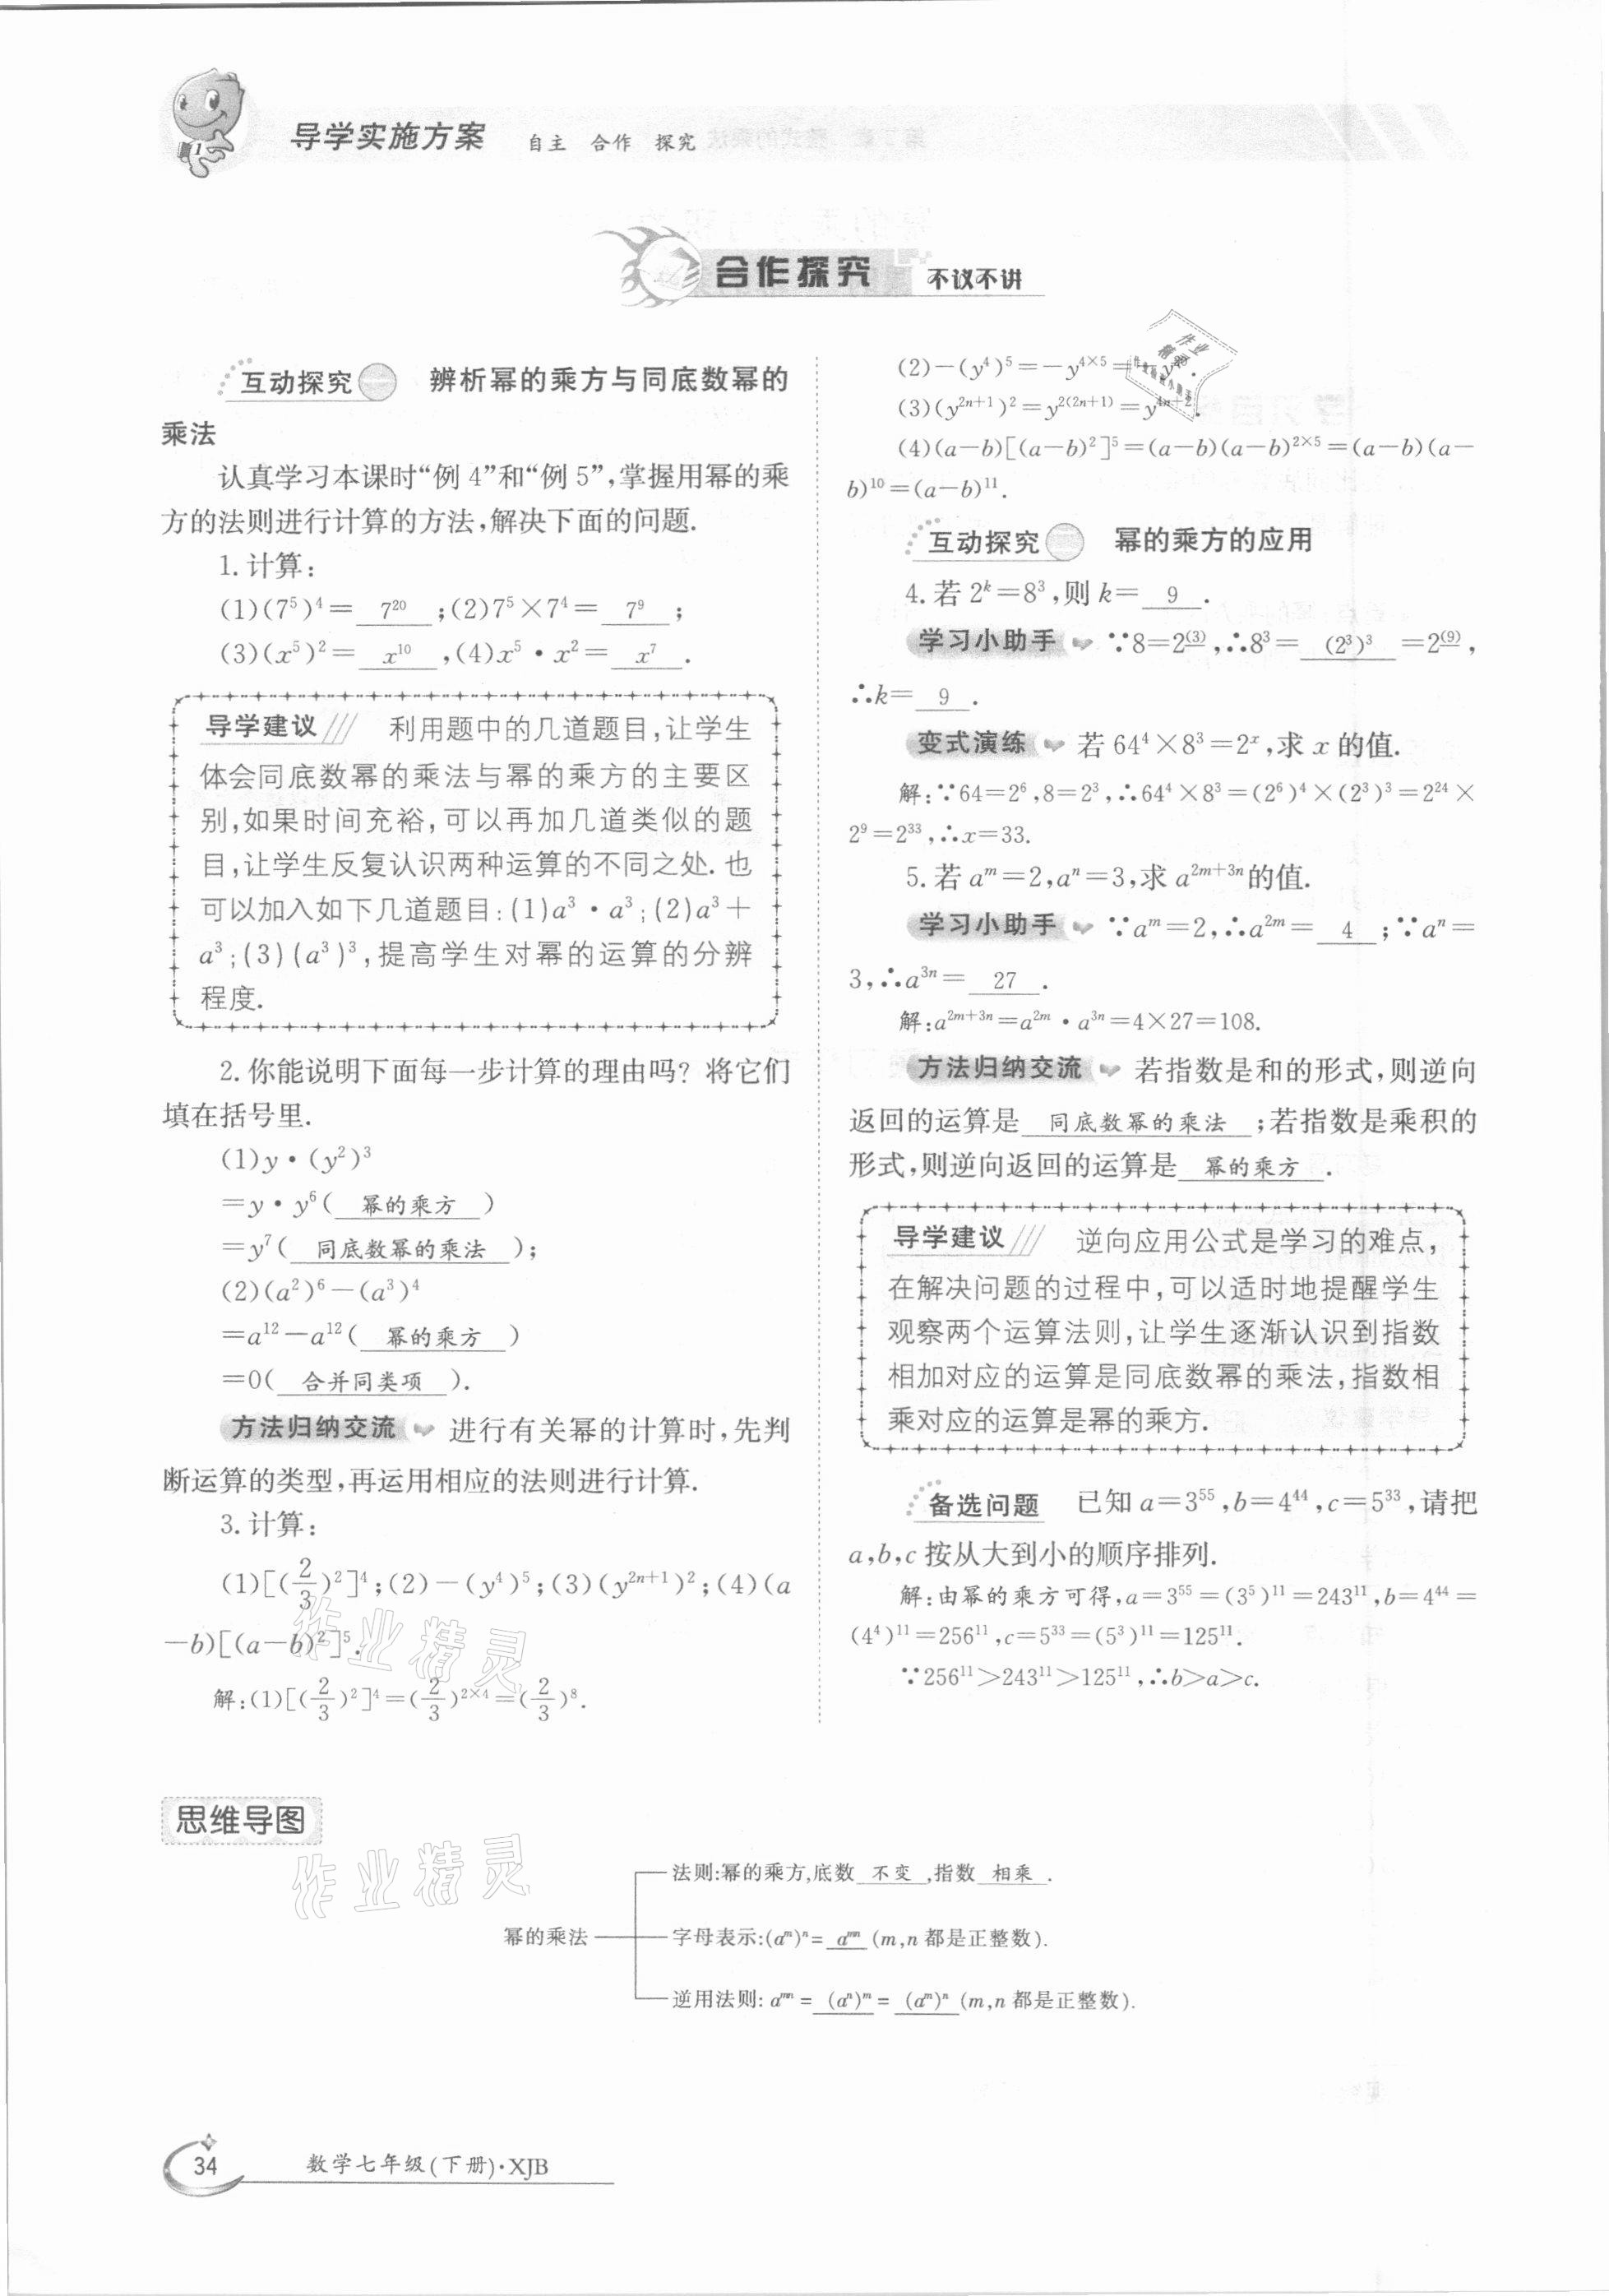 导学实施方案 自主 合作 探究
合作探究 不议不讲
互动探究一 辨析幂的乘方与同底数幂的
乘法
认真学习本课时“例4”和“例5”,掌握用幂的乘
方的法则进行计算的方法,解决下面的问题.
1.计算:
(1)(7⁵)⁴= 7²⁰ ;(2)7⁵×7⁴= 7⁹ ;
(3)(x⁵)²= x¹⁰ ,(4)x⁵·x²= x⁷ .
导学建议 利用题中的几道题目,让学生
体会同底数幂的乘法与幂的乘方的主要区
别,如果时间充裕,可以再加几道类似的题
目,让学生反复认识两种运算的不同之处.也
可以加入如下几道题目:(1)a³·a³;(2)a³+
a³;(3)(a³)³,提高学生对幂的运算的分辨
程度.
2.你能说明下面每一步计算的理由吗?将它们
填在括号里.
(1)y·(y²)³
=y·y⁶( 幂的乘方 )
=y⁷( 同底数幂的乘法 );
(2)(a²)⁶-(a³)⁴
=a¹²-a¹²( 幂的乘方 )
=0( 合并同类项 ).
方法归纳交流 进行有关幂的计算时,先判
断运算的类型,再运用相应的法则进行计算.
3.计算:
(1)[(2/3)²]⁴;(2)-(y⁴)⁵;(3)(y²ⁿ⁺¹)²;(4)(a
-b)[(a-b)²]⁵.
解:(1)[(2/3)²]⁴=(2/3)²ˣ⁴=(2/3)⁸.
(2)-(y⁴)⁵=-y⁴ˣ⁵=-y²⁰.
(3)(y²ⁿ⁺¹)²=y²⁽²ⁿ⁺¹⁾=y⁴ⁿ⁺².
(4)(a-b)[(a-b)²]⁵=(a-b)(a-b)²ˣ⁵=(a-b)(a-
b)¹⁰=(a-b)¹¹.
互动探究 幂的乘方的应用
4.若2ᵏ=8³,则k= 9 .
学习小助手 ∵8=2⁽³⁾,∴8³= (2³)³ =2⁽⁹⁾,
∴k= 9 .
变式演练 若64⁴×8³=2ˣ,求x的值.
解:∵64=2⁶,8=2³,∴64⁴×8³=(2⁶)⁴×(2³)³=2²⁴×
2⁹=2³³,∴x=33.
5.若aᵐ=2,aⁿ=3,求a²ᵐ⁺³ⁿ的值.
学习小助手 ∵aᵐ=2,∴a²ᵐ= 4 ;∵aⁿ=
3,∴a³ⁿ= 27 .
解:a²ᵐ⁺³ⁿ=a²ᵐ·a³ⁿ=4×27=108.
方法归纳交流 若指数是和的形式,则逆向
返回的运算是 同底数幂的乘法 ;若指数是乘积的
形式,则逆向返回的运算是 幂的乘方 .
导学建议 逆向应用公式是学习的难点,
在解决问题的过程中,可以适时地提醒学生
观察两个运算法则,让学生逐渐认识到指数
相加对应的运算是同底数幂的乘法,指数相
乘对应的运算是幂的乘方.
备选问题 已知a=3⁵⁵,b=4⁴⁴,c=5³³,请把
a,b,c按从大到小的顺序排列.
解:由幂的乘方可得,a=3⁵⁵=(3⁵)¹¹=243¹¹,b=4⁴⁴=
(4⁴)¹¹=256¹¹,c=5³³=(5³)¹¹=125¹¹.
∵256¹¹>243¹¹>125¹¹,∴b>a>c.
思维导图
法则:幂的乘方,底数 不变 ,指数 相乘 .
幂的乘法
字母表示:(aᵐ)ⁿ= aᵐⁿ (m,n都是正整数).
逆用法则: aᵐⁿ= (aⁿ)ᵐ = (aᵐ)ⁿ (m,n都是正整数).
作业精灵
作业精灵
34 数学七年级(下册)·XJB